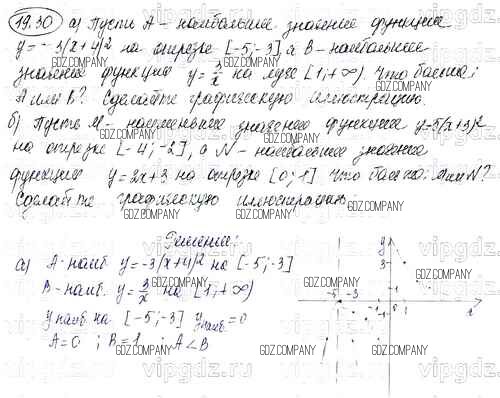 19.30 а) Пусть A - наибольшее значение функции
y = -3(x+4)² на отрезке [-5;-3], а B - наибольшее
значение функции y = 3/x на луче [1;+∞). Что больше:
A или B? Сделайте графическую иллюстрацию.
б) Пусть M - наименьшее значение функции y=5(x+3)²
на отрезке [-4;-2], а N - наибольшее значение
функции y = 2x+3 на отрезке [0;1] Что больше: M или N?
Сделайте графическую иллюстрацию.
Решение:
а) A-наиб y=-3(x+4)² на [-5;-3]
B-наиб. y=3/x на [1;+∞)
y наиб на [-5;-3] y наиб=0
A=0 ; B=1 ; A<B
y
3
-5 -3
-1
1
x
GDZ.COMPANY
vipgdz